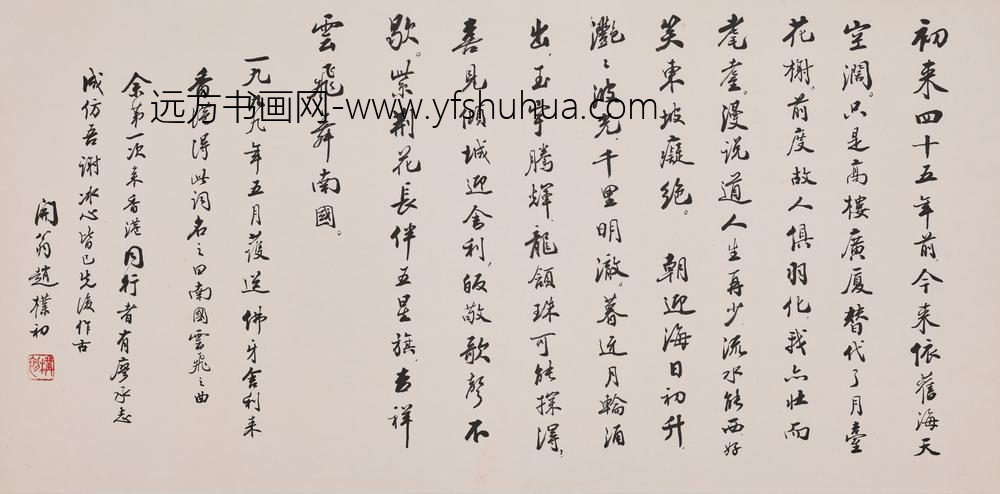 初来四十五年前，今来依舊海天
空濶。只是高樓廣厦，替代了月臺
花榭。前度故人俱羽化，我亦壮而
耄耋。漫说道人生再少，流水能西，好
笑東坡癡绝。 朝迎海日初升，
灔灔波光，千里明澈。暮迓月輪涌
出，玉宇騰輝，龍颔珠可能探得？
喜見傾城迎舍利，皈敬歌聲不
歇。紫荆花長伴五星旗，吉祥
雲飛舞南國。
一九九九年五月護送佛牙舍利来
香港得此词名之曰南國雲飛之曲
余第一次来香港同行者有廖承志
成仿吾谢冰心皆已先後作古
開翁趙樸初
樸初
远方书画网-www.yfshuhua.com